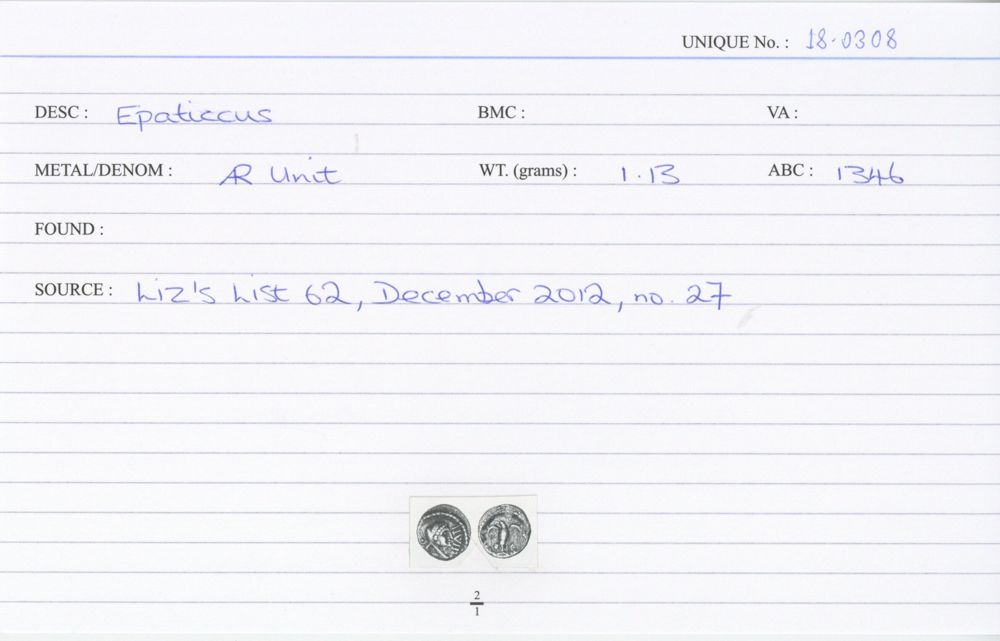 UNIQUE No. : 18.0308
DESC : Epaticcus BMC : VA :
METAL/DENOM : AR Unit WT. (grams) : 1.13 ABC : 1346
FOUND :
SOURCE : Liz's List 62, December 2012, no. 27
2
1